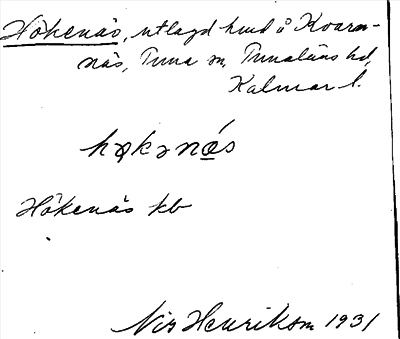 Hökenäs, utlagd hmd å Kvarn-
näs, Tuna sn, Tunaläns hd,
Kalmar l.
høkənäs
Hökenäs kb
Nis Henrikson 1931